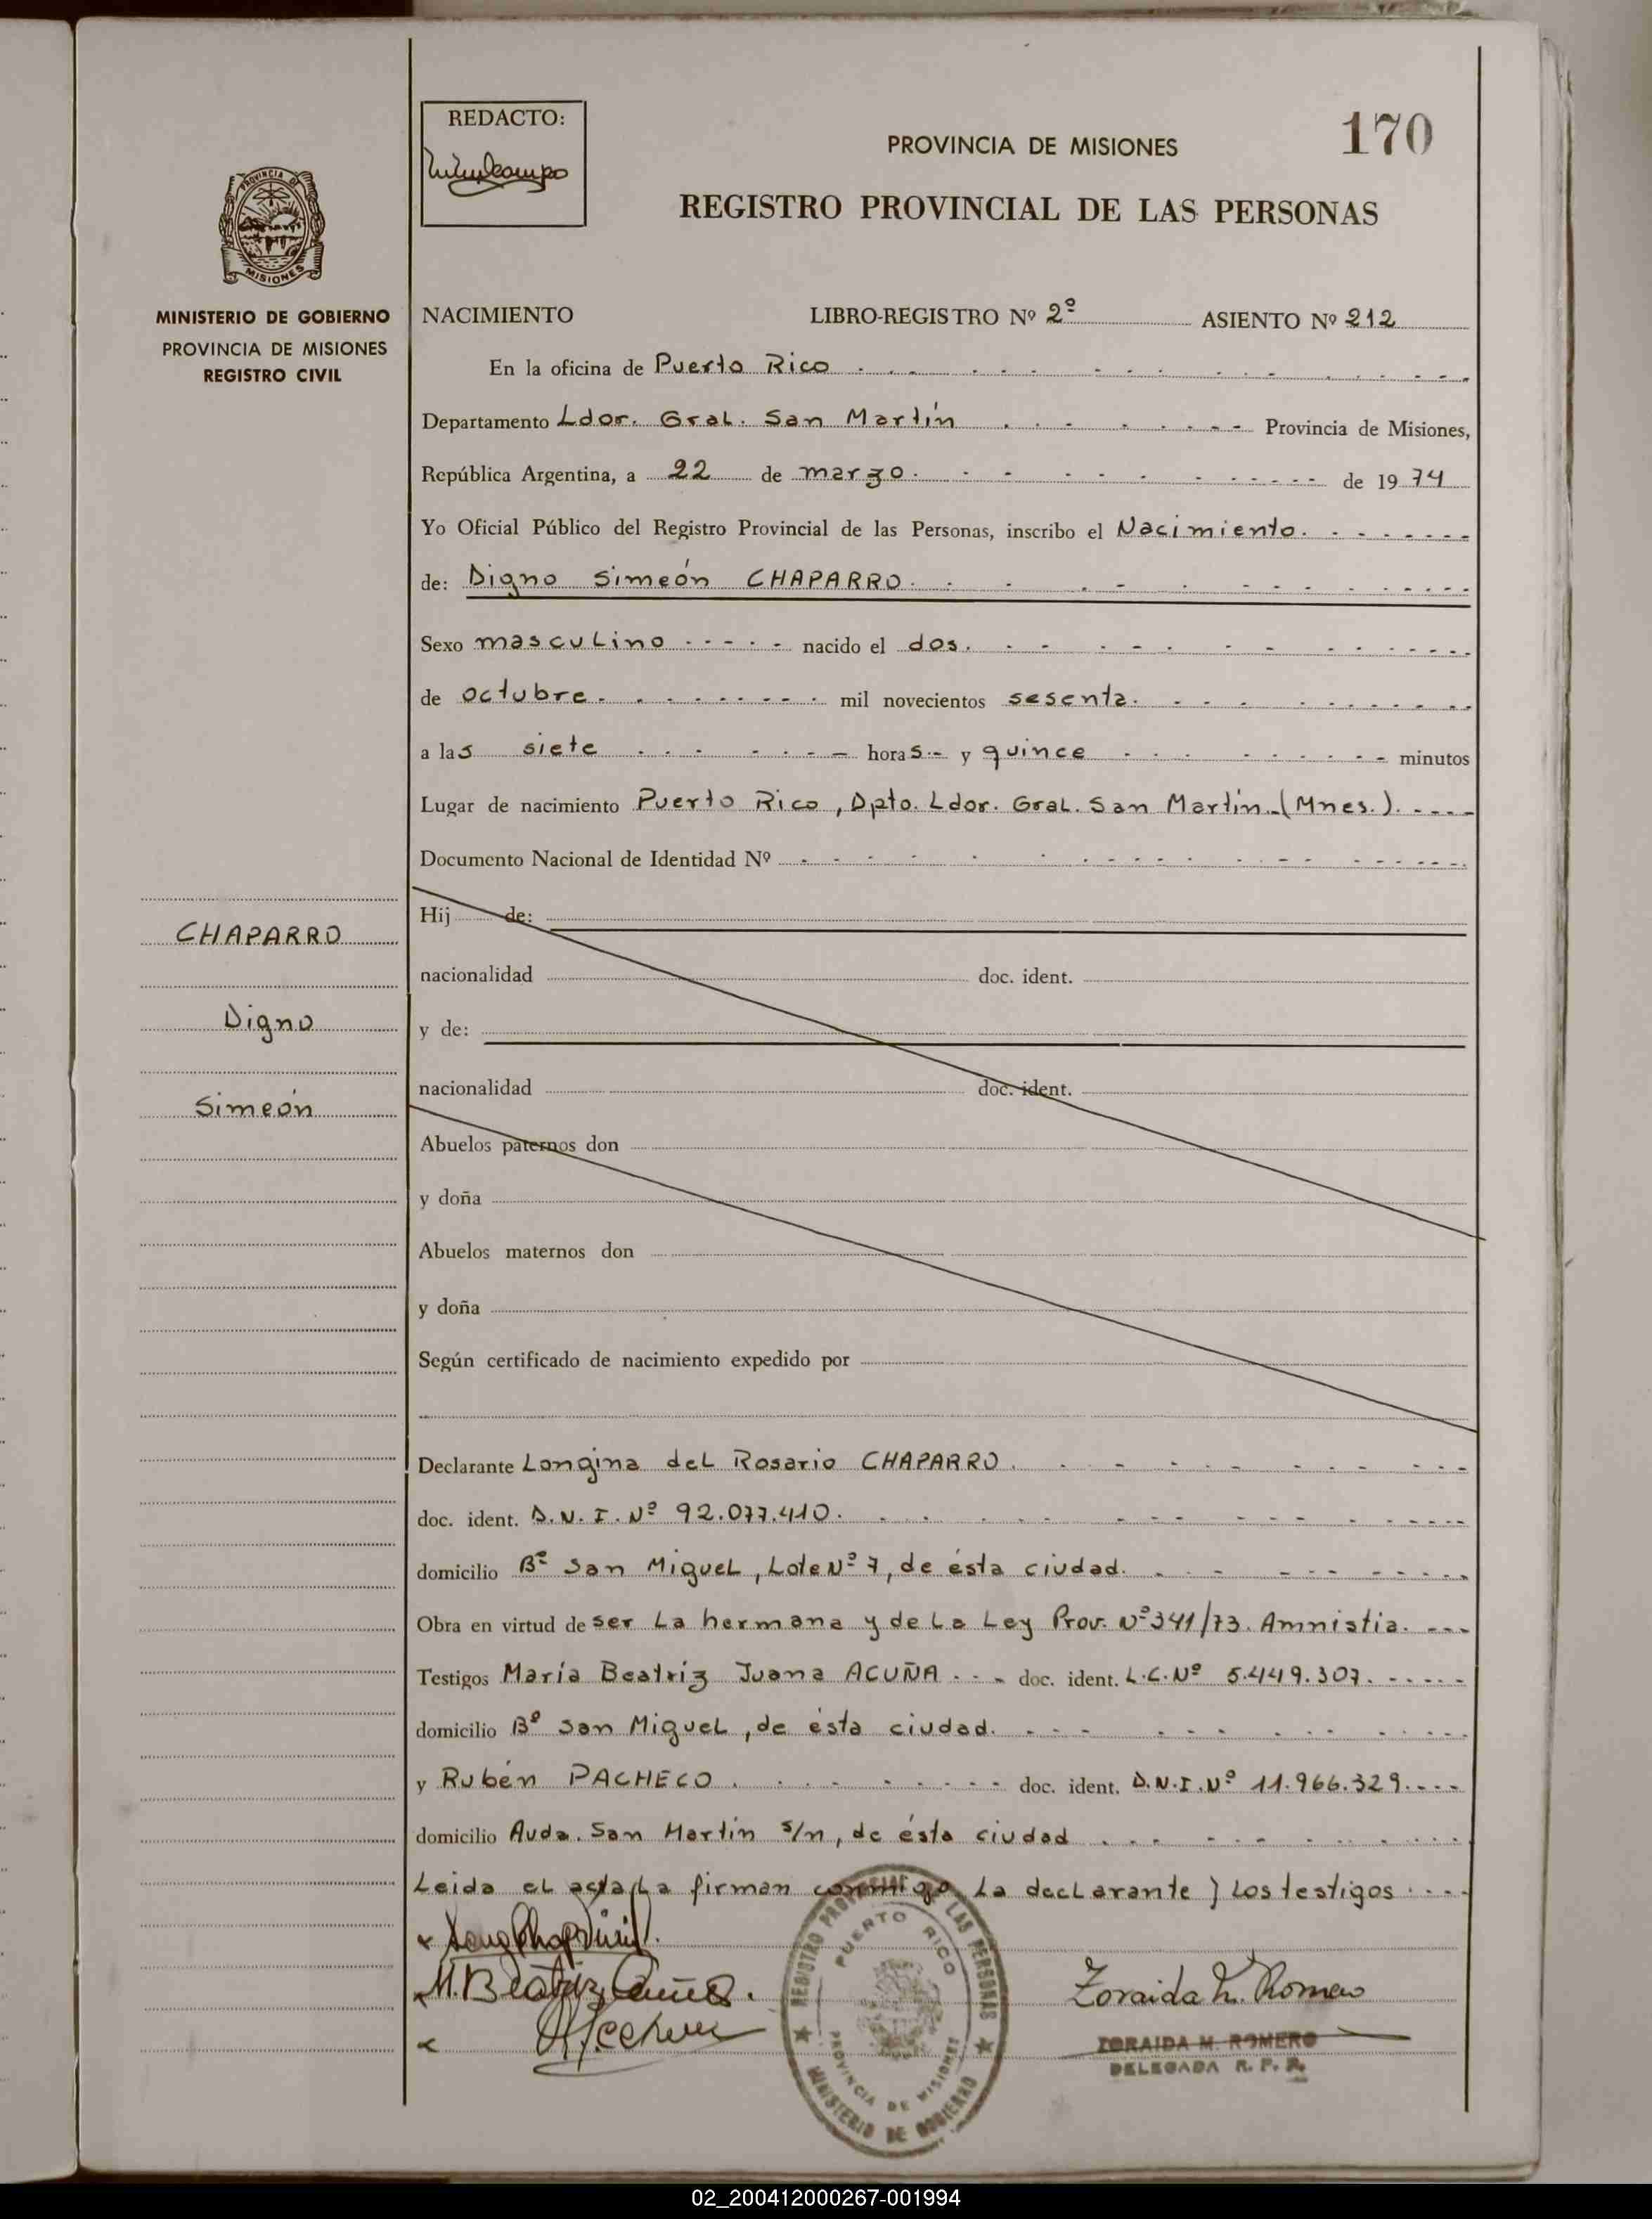 REDACTO:
170
PROVINCIA DE MISIONES
REGISTRO PROVINCIAL DE LAS PERSONAS
PROVINCIA D
MISIONES
MINISTERIO DE GOBIERNO
PROVINCIA DE MISIONES
REGISTRO CIVIL
NACIMIENTO LIBRO-REGISTRO Nº 2º ASIENTO Nº 212
En la oficina de Puerto Rico
Departamento Ldor. Gral. San Martín Provincia de Misiones,
República Argentina, a 22 de marzo. de 1974
Yo Oficial Público del Registro Provincial de las Personas, inscribo el Nacimiento.
de: Digno Simeón CHAPARRO.
Sexo masculino nacido el dos.
de octubre. mil novecientos sesenta.
a las siete horas.- y quince minutos
Lugar de nacimiento Puerto Rico, Dpto. Ldor. Gral. San Martín.(Mnes.).
Documento Nacional de Identidad Nº
Hij de:
CHAPARRO
nacionalidad doc. ident.
Digno
y de:
nacionalidad doc. ident.
Simeón
Abuelos paternos don
y doña
Abuelos maternos don
y doña
Según certificado de nacimiento expedido por
Declarante Longina del Rosario CHAPARRO.
doc. ident. D.N.I. Nº 92.077.410.
domicilio Bº San Miguel, Lote Nº 7, de ésta ciudad.
Obra en virtud de ser la hermana y de la Ley Prov. Nº 341/73. Amnistia.
Testigos María Beatriz Juana ACUÑA doc. ident. L.C. Nº 5.449.307.
domicilio Bº San Miguel, de ésta ciudad.
y Rubén PACHECO. doc. ident. D.N.I. Nº 11.966.329.
domicilio Avda. San Martin s/n, de ésta ciudad
Leida el acta, la firman conmigo la declarante y los testigos
M. Beatriz Acuña.
Zoraida M. Romero
REGISTRO PROVINCIAL DE LAS PERSONAS
PUERTO RICO
PROVINCIA DE MISIONES
MINISTERIO DE GOBIERNO
ZORAIDA M. ROMERO
DELEGADA R. P. P.
02_200412000267-001994